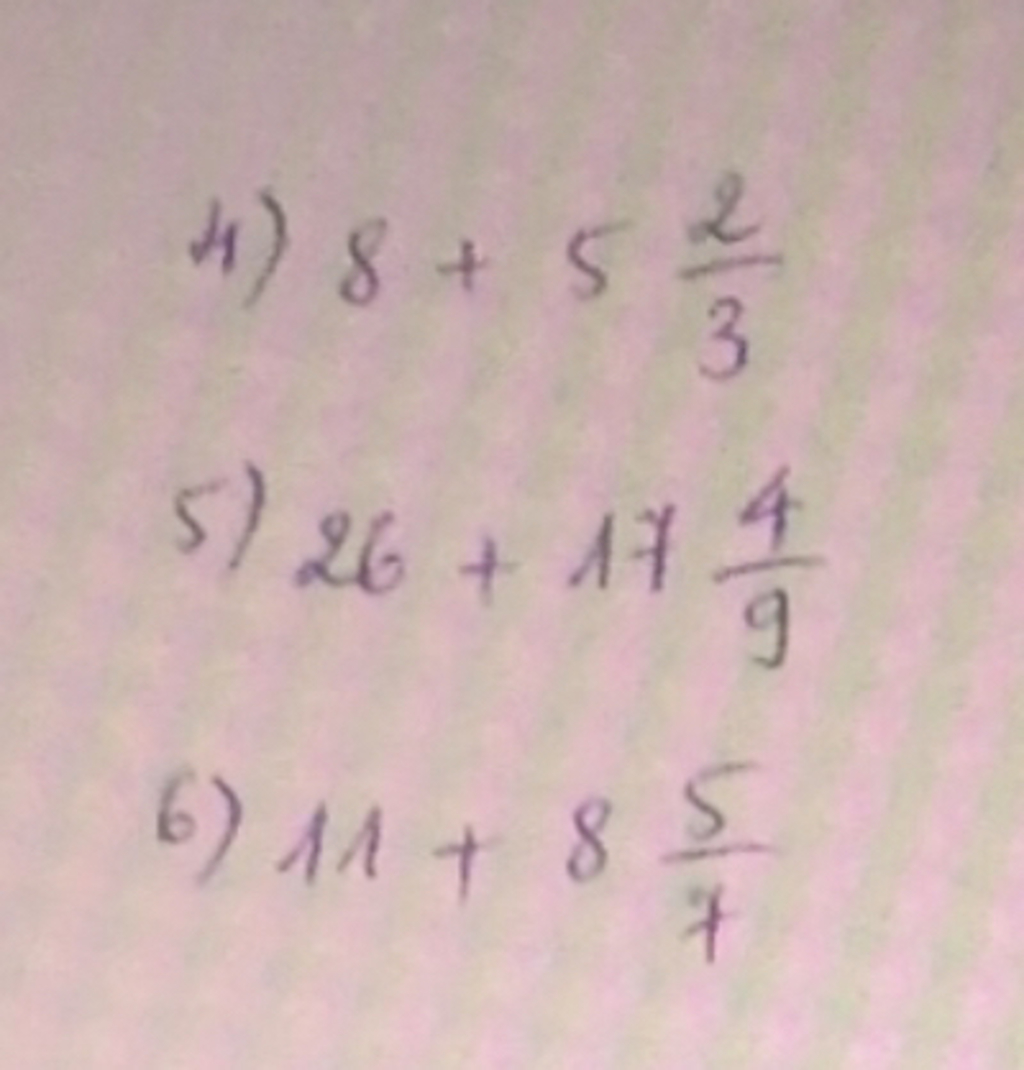 4) 8 + 5 2/3
5) 26 + 17 4/9
6) 11 + 8 5/7